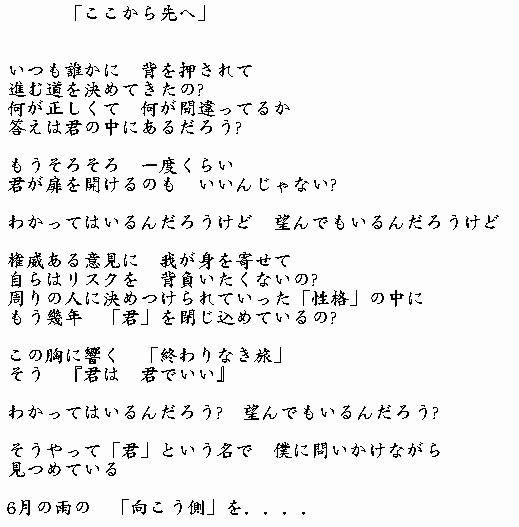 「ここから先へ」
いつも誰かに　背を押されて
進む道を決めてきたの?
何が正しくて　何が間違ってるか
答えは君の中にあるだろう?
もうそろそろ　一度くらい
君が扉を開けるのも　いいんじゃない?
わかってはいるんだろうけど　望んでもいるんだろうけど
権威ある意見に　我が身を寄せて
自らはリスクを　背負いたくないの?
周りの人に決めつけられていった「性格」の中に
もう幾年　「君」を閉じ込めているの?
この胸に響く　「終わりなき旅」
そう　『君は　君でいい』
わかってはいるんだろう?　望んでもいるんだろう?
そうやって「君」という名で　僕に問いかけながら
見つめている
6月の雨の　「向こう側」を．．．．